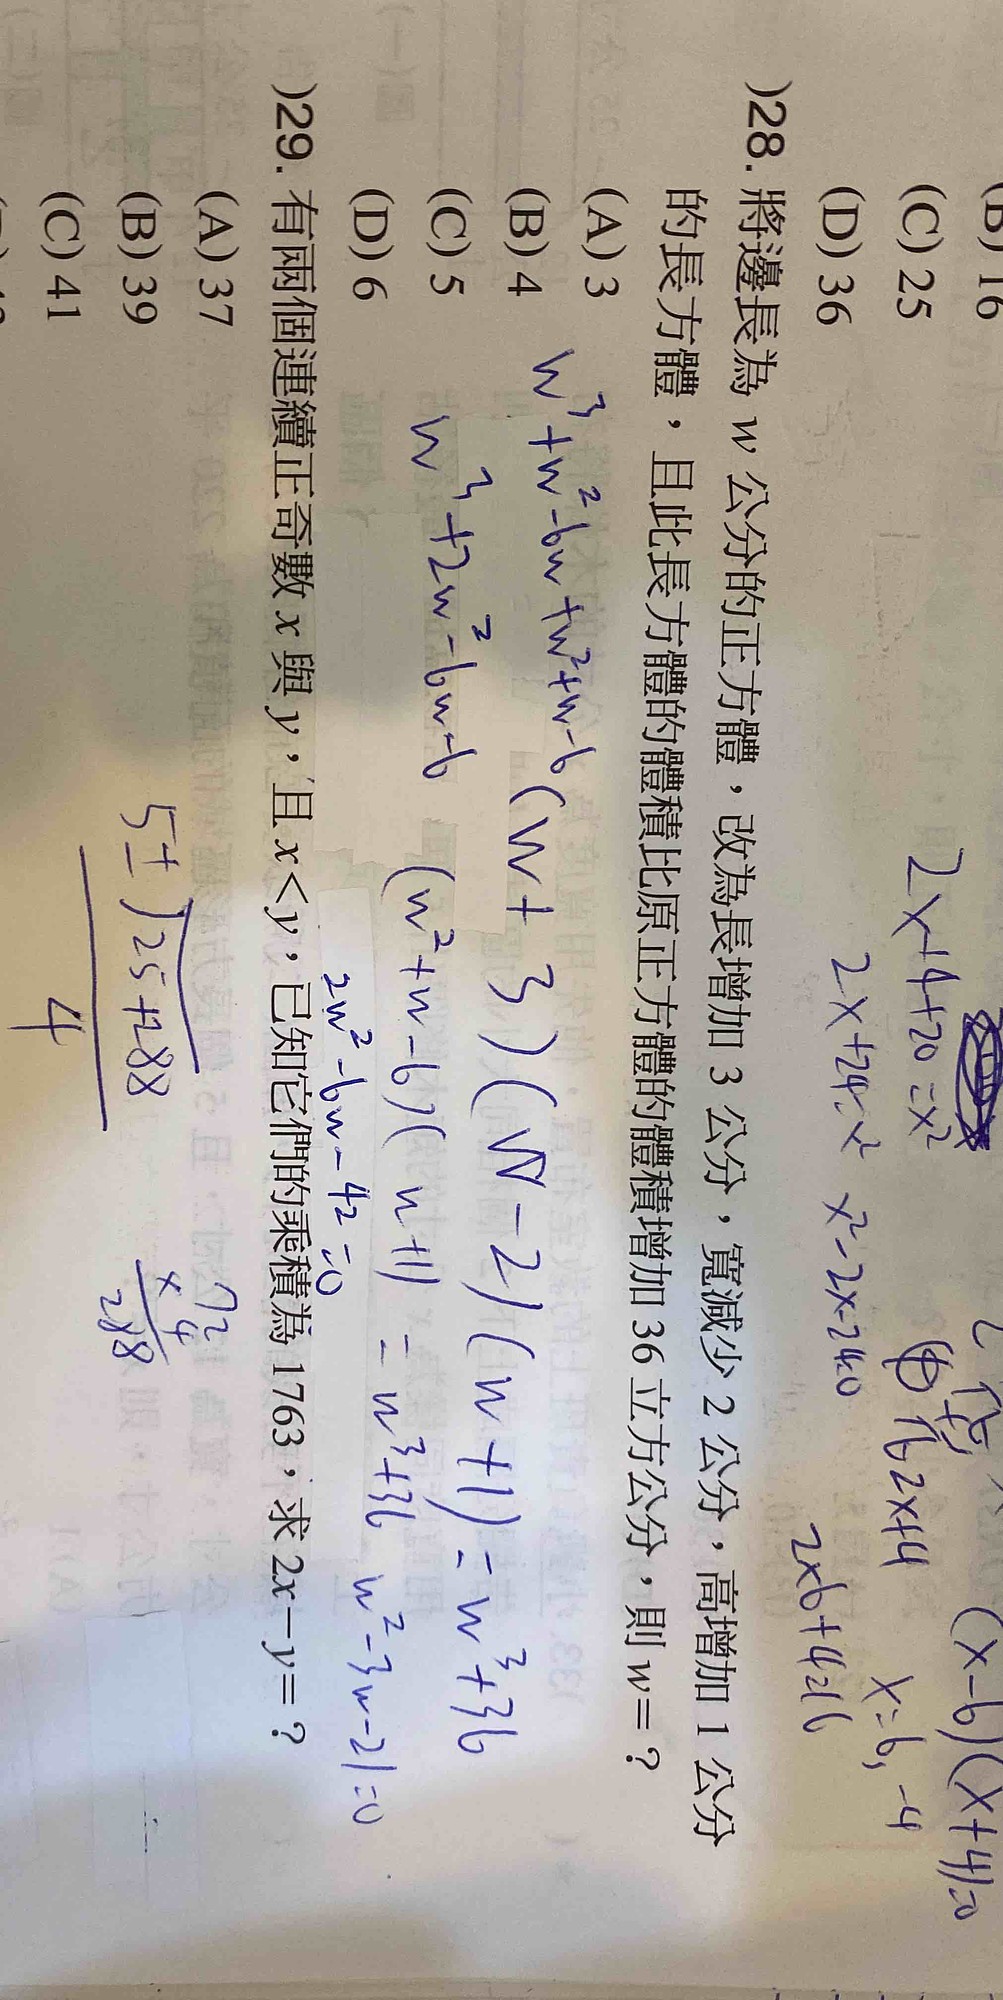 (B) 16
(C) 25
(D) 36
2x+4+20=x²
2x+24=x²
x²-2x-24=0
2x+4
(x-6)(x+4)=0
x=6, -4
2x6+4=16
)28. 將邊長為 w 公分的正方體，改為長增加 3 公分，寬減少 2 公分，高增加 1 公分
的長方體，且此長方體的體積比原正方體的體積增加 36 立方公分，則 w=？
(A) 3
(B) 4
(C) 5
(D) 6
(w+3)(w-2)(w+1)=w³+36
w³+w²-6w+w²+w-6
(w²+w-6)(w+1)=w³+36
w³+2w²-6w-6
2w²-6w-42=0
w²-3w-21=0
)29. 有兩個連續正奇數 x 與 y，且 x<y，已知它們的乘積為 1763，求 2x-y=？
(A) 37
(B) 39
(C) 41
5±√25+288
4
72
x 4
288